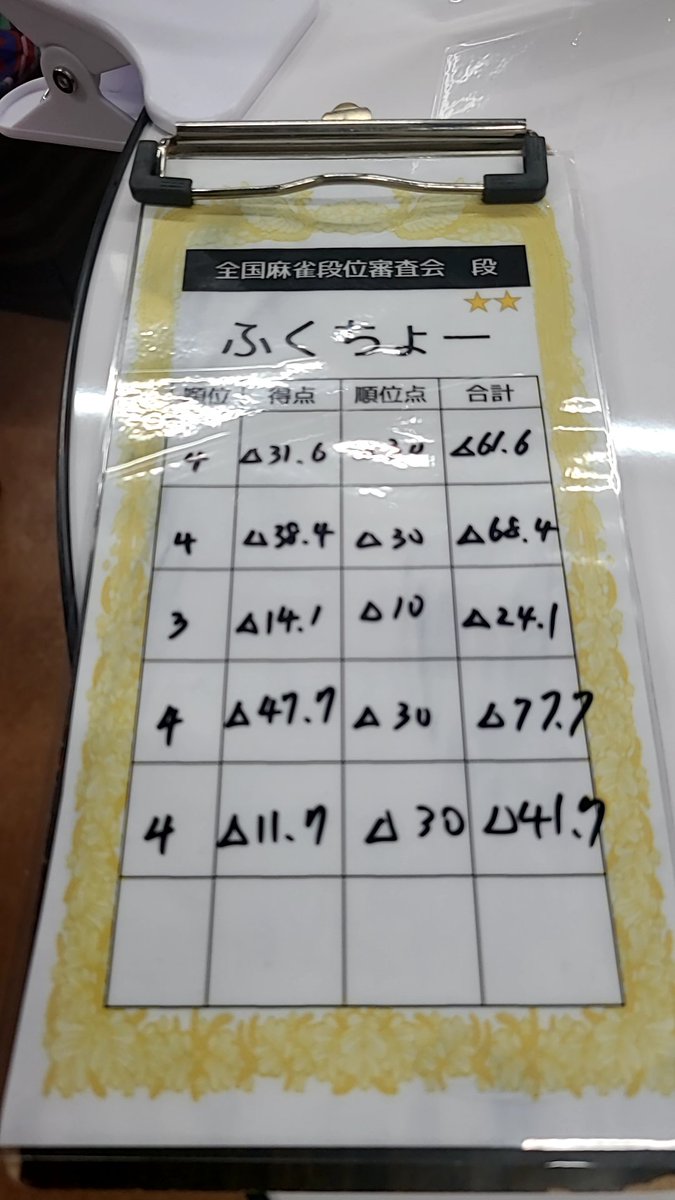 全国麻雀段位審査会 段
★★
ふくちょー
順位 得点 順位点 合計
4 △31.6 △30 △61.6
4 △38.4 △30 △68.4
3 △14.1 △10 △24.1
4 △47.7 △30 △77.7
4 △11.7 △30 △41.7